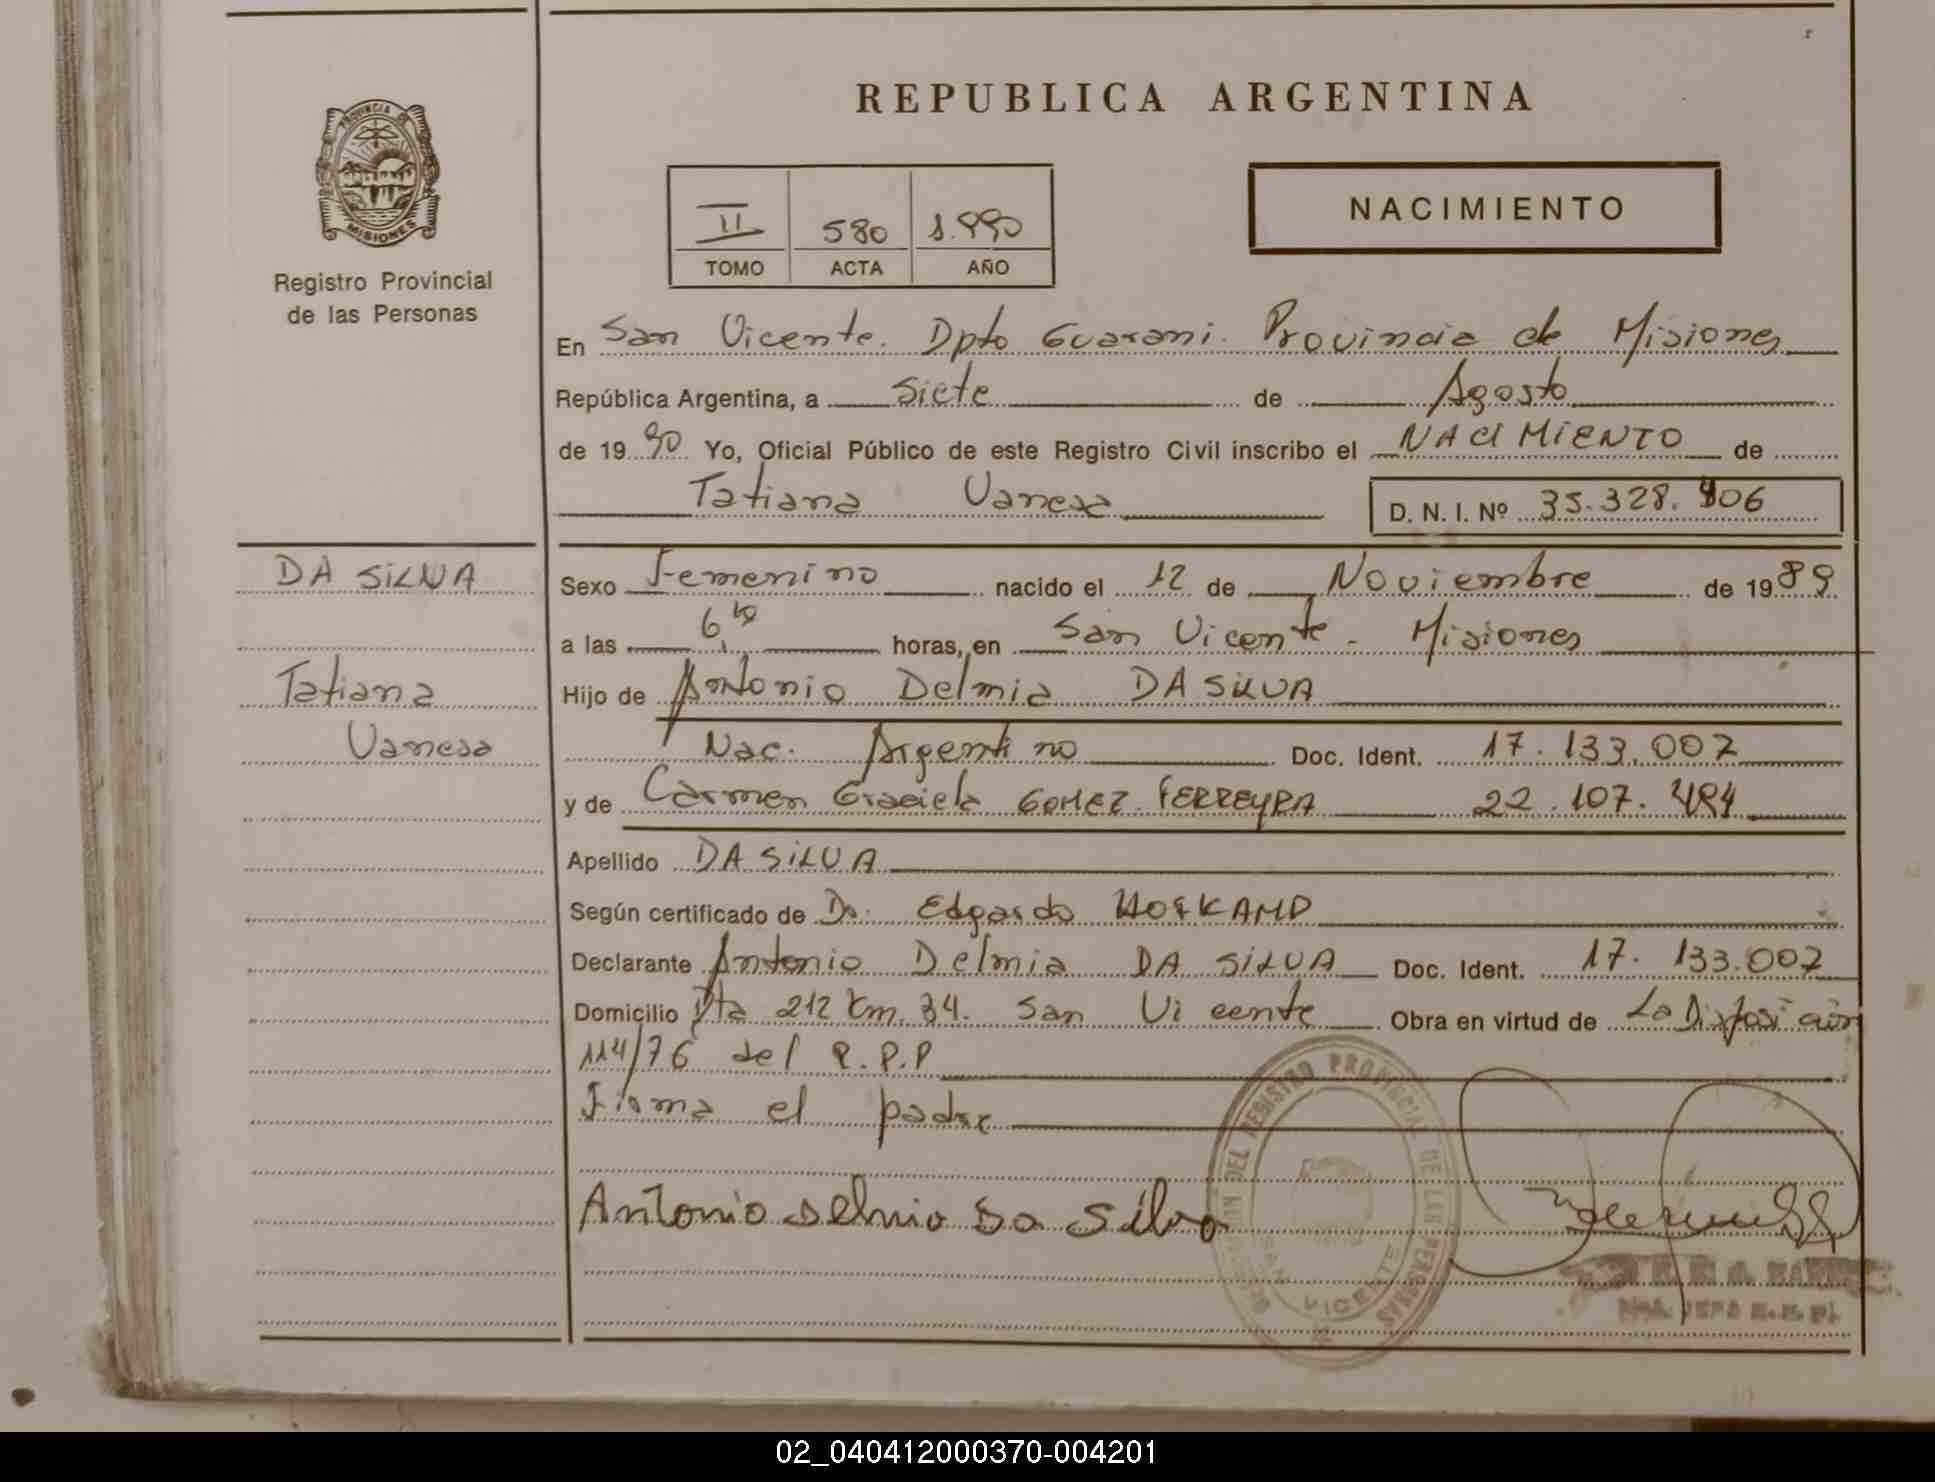 PROVINCIA DE
MISIONES
Registro Provincial
de las Personas
REPUBLICA ARGENTINA
II 580 1.990
TOMO ACTA AÑO
NACIMIENTO
En San Vicente. Dpto Guarani. Provincia de Misiones
República Argentina, a siete de Agosto
de 1990 Yo, Oficial Público de este Registro Civil inscribo el NACIMIENTO de
Tatiana Vanesa D. N. I. Nº 35.328.906
DA SILVA
Tatiana
Vanesa
Sexo Femenino nacido el 12 de Noviembre de 1989
a las 6 horas, en San Vicente - Misiones
Hijo de Antonio Delmia DA SILVA
Nac. Argentino Doc. Ident. 17.133.007
y de Carmen Graciela GOMEZ FERREYRA 22.107.484
Apellido DA SILVA
Según certificado de Dr. Edgardo
Declarante Antonio Delmia DA SILVA Doc. Ident. 17.133.007
Domicilio Rta 212 Km. 34. San Vicente Obra en virtud de La Disposición
114/76 del R.P.P
Firma el padre
Antonio delmio Da Silva
DEL REGISTRO PROVINCIAL DE LAS PERSONAS
SAN VICENTE
02_040412000370-004201